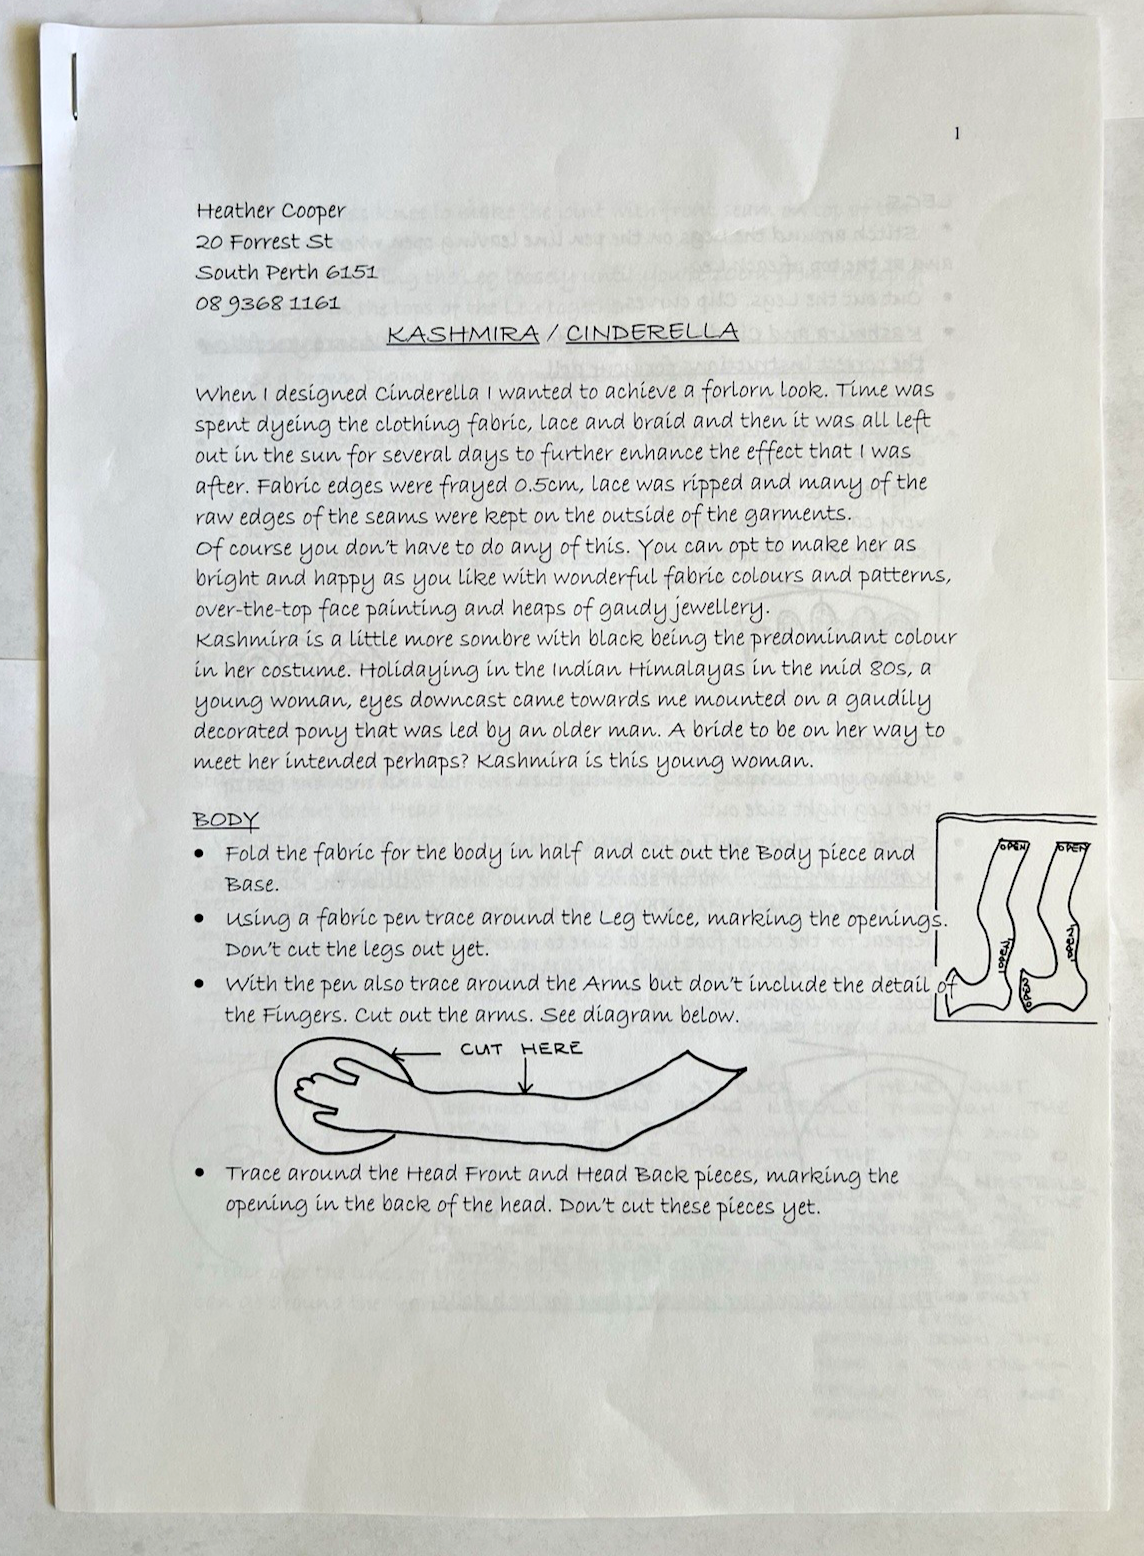 1
Heather Cooper
20 Forrest St
South Perth 6151
08 9368 1161
KASHMIRA / CINDERELLA
When I designed Cinderella I wanted to achieve a forlorn look. Time was
spent dyeing the clothing fabric, lace and braid and then it was all left
out in the sun for several days to further enhance the effect that I was
after. Fabric edges were frayed 0.5cm, lace was ripped and many of the
raw edges of the seams were kept on the outside of the garments.
Of course you don't have to do any of this. You can opt to make her as
bright and happy as you like with wonderful fabric colours and patterns,
over-the-top face painting and heaps of gaudy jewellery.
Kashmira is a little more sombre with black being the predominant colour
in her costume. Holidaying in the Indian Himalayas in the mid 80s, a
young woman, eyes downcast came towards me mounted on a gaudily
decorated pony that was led by an older man. A bride to be on her way to
meet her intended perhaps? Kashmira is this young woman.
BODY
• Fold the fabric for the body in half and cut out the Body piece and
Base.
• Using a fabric pen trace around the Leg twice, marking the openings.
Don't cut the legs out yet.
• With the pen also trace around the Arms but don't include the detail of
the Fingers. Cut out the arms. See diagram below.
OPEN OPEN
OPEN OPEN
OPEN
CUT HERE
• Trace around the Head Front and Head Back pieces, marking the
opening in the back of the head. Don't cut these pieces yet.